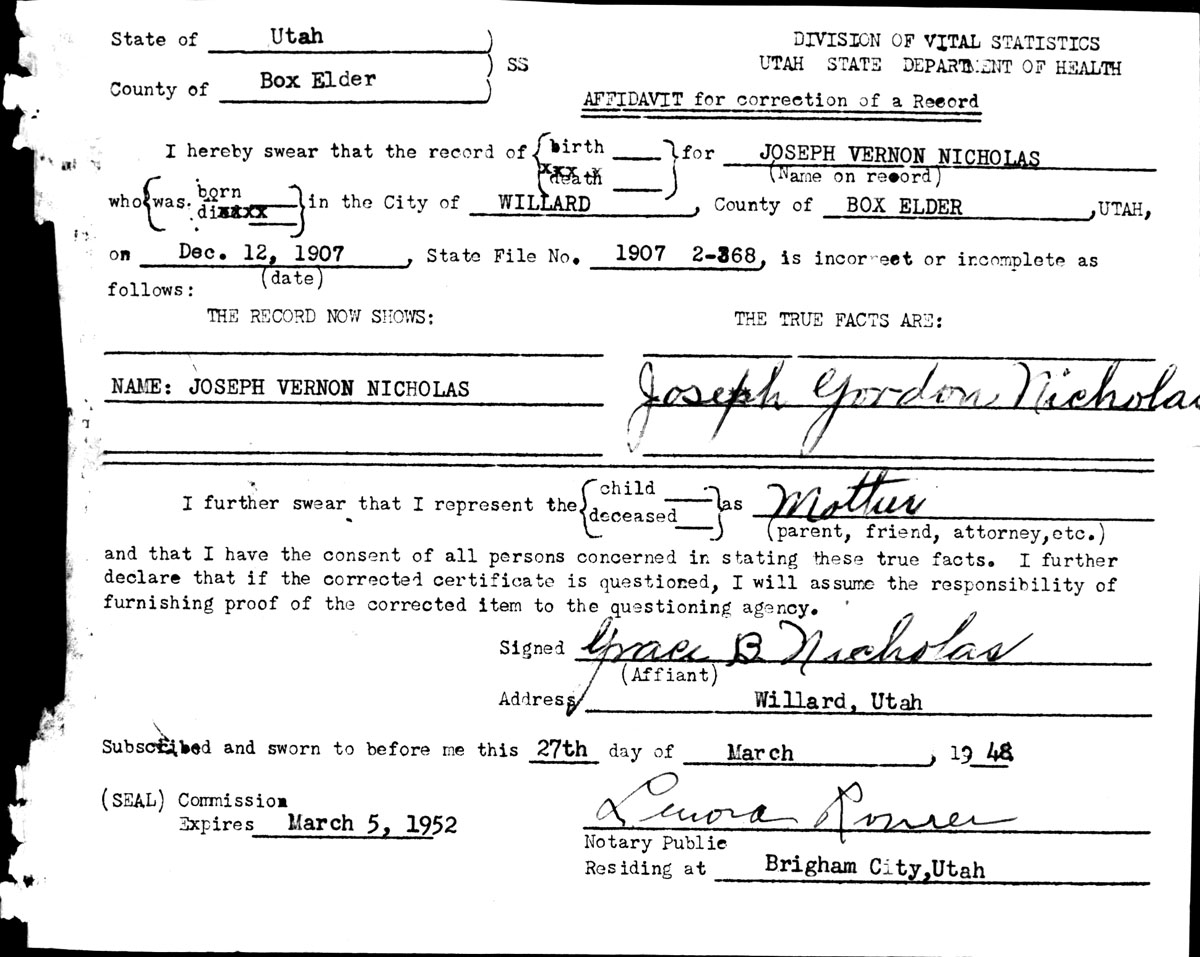 State of Utah ) DIVISION OF VITAL STATISTICS
) SS UTAH STATE DEPARTMENT OF HEALTH
County of Box Elder )
AFFIDAVIT for correction of a Record
I hereby swear that the record of { birth ___ } for JOSEPH VERNON NICHOLAS
death ___ (Name on record)
who { was born ___ } in the City of WILLARD, County of BOX ELDER, UTAH,
dixxxx
on Dec. 12, 1907, State File No. 1907 2-368, is incorrect or incomplete as
(date)
follows:
THE RECORD NOW SHOWS: THE TRUE FACTS ARE:
NAME: JOSEPH VERNON NICHOLAS Joseph Gordon Nicholas
I further swear that I represent the { child ___ } as Mother
deceased ___ (parent, friend, attorney, etc.)
and that I have the consent of all persons concerned in stating these true facts. I further
declare that if the corrected certificate is questioned, I will assume the responsibility of
furnishing proof of the corrected item to the questioning agency.
Signed Grace B Nicholas
(Affiant)
Address Willard, Utah
Subscribed and sworn to before me this 27th day of March, 1948
(SEAL) Commission
Expires March 5, 1952 Lenora
Notary Public
Residing at Brigham City, Utah